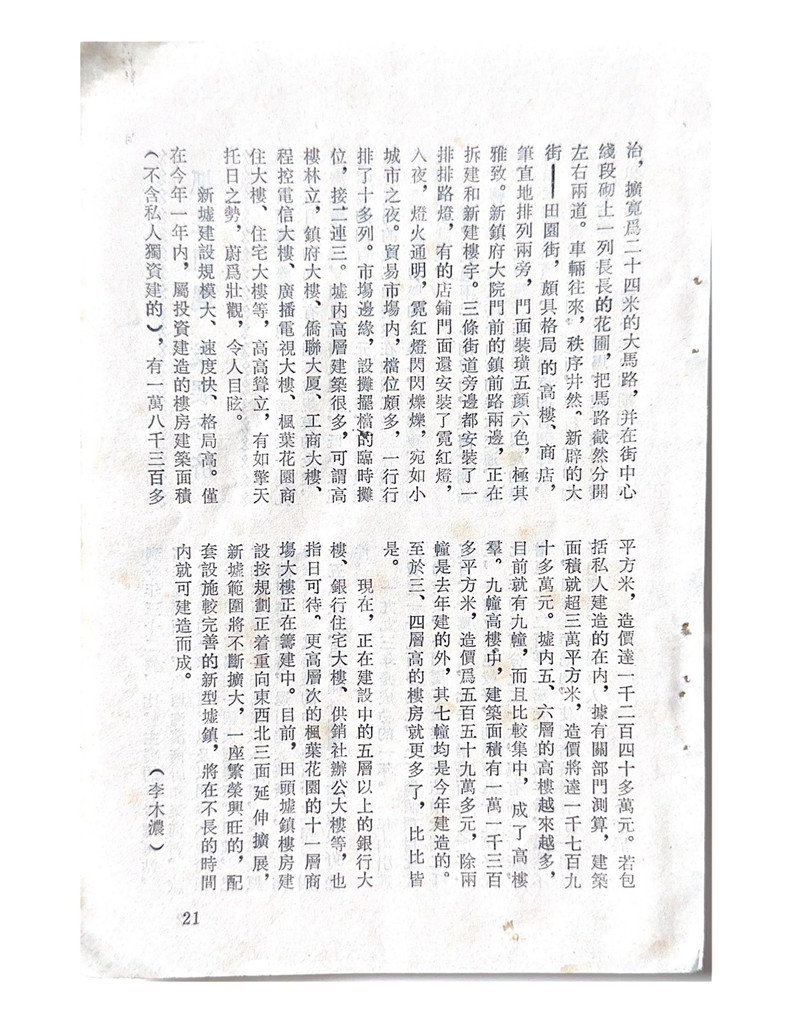 治，擴寬爲二十四米的大馬路，并在街中心
綫段砌上一列長長的花圃，把馬路截然分開
左右兩道。車輛往來，秩序井然。新辟的大
街——田園街，頗具格局的高樓、商店，
筆直地排列兩旁，門面裝璜五顔六色，極其
雅致。新鎮府大院門前的鎮前路兩邊，正在
拆建和新建樓宇。三條街道旁邊都安裝了一
排排路燈，有的店鋪門面還安裝了霓紅燈，
入夜，燈火通明，霓紅燈閃閃爍爍，宛如小
城市之夜。貿易市場内，檔位頗多，一行行
排了十多列。市場邊緣，設攤擺檔的臨時攤
位，接二連三。墟内高層建築很多，可謂高
樓林立，鎮府大樓、僑聯大厦、工商大樓、
程控電信大樓、廣播電視大樓、楓葉花園商
住大樓、住宅大樓等，高高聳立，有如擎天
托日之勢，蔚爲壯觀，令人目眩。
新墟建設規模大、速度快、格局高。僅
在今年一年内，屬投資建造的樓房建築面積
（不含私人獨資建的），有一萬八千三百多
平方米，造價達一千二百四十多萬元。若包
括私人建造的在内，據有關部門測算，建築
面積就超三萬平方米，造價將達一千七百九
十多萬元。墟内五、六層的高樓越來越多，
目前就有九幢，而且比較集中，成了高樓
羣。九幢高樓中，建築面積有一萬一千三百
多平方米，造價爲五百五十九萬多元，除兩
幢是去年建的外，其七幢均是今年建造的。
至於三、四層高的樓房就更多了，比比皆
是。
現在，正在建設中的五層以上的銀行大
樓、銀行住宅大樓、供銷社辦公大樓等，也
指日可待。更高層次的楓葉花園的十一層商
塲大樓正在籌建中。目前，田頭墟鎮樓房建
設按規劃正着重向東西北三面延伸擴展，
新墟範圍將不斷擴大，一座繁榮興旺的，配
套設施較完善的新型墟鎮，將在不長的時間
内就可建造而成。
（李木濃）
21